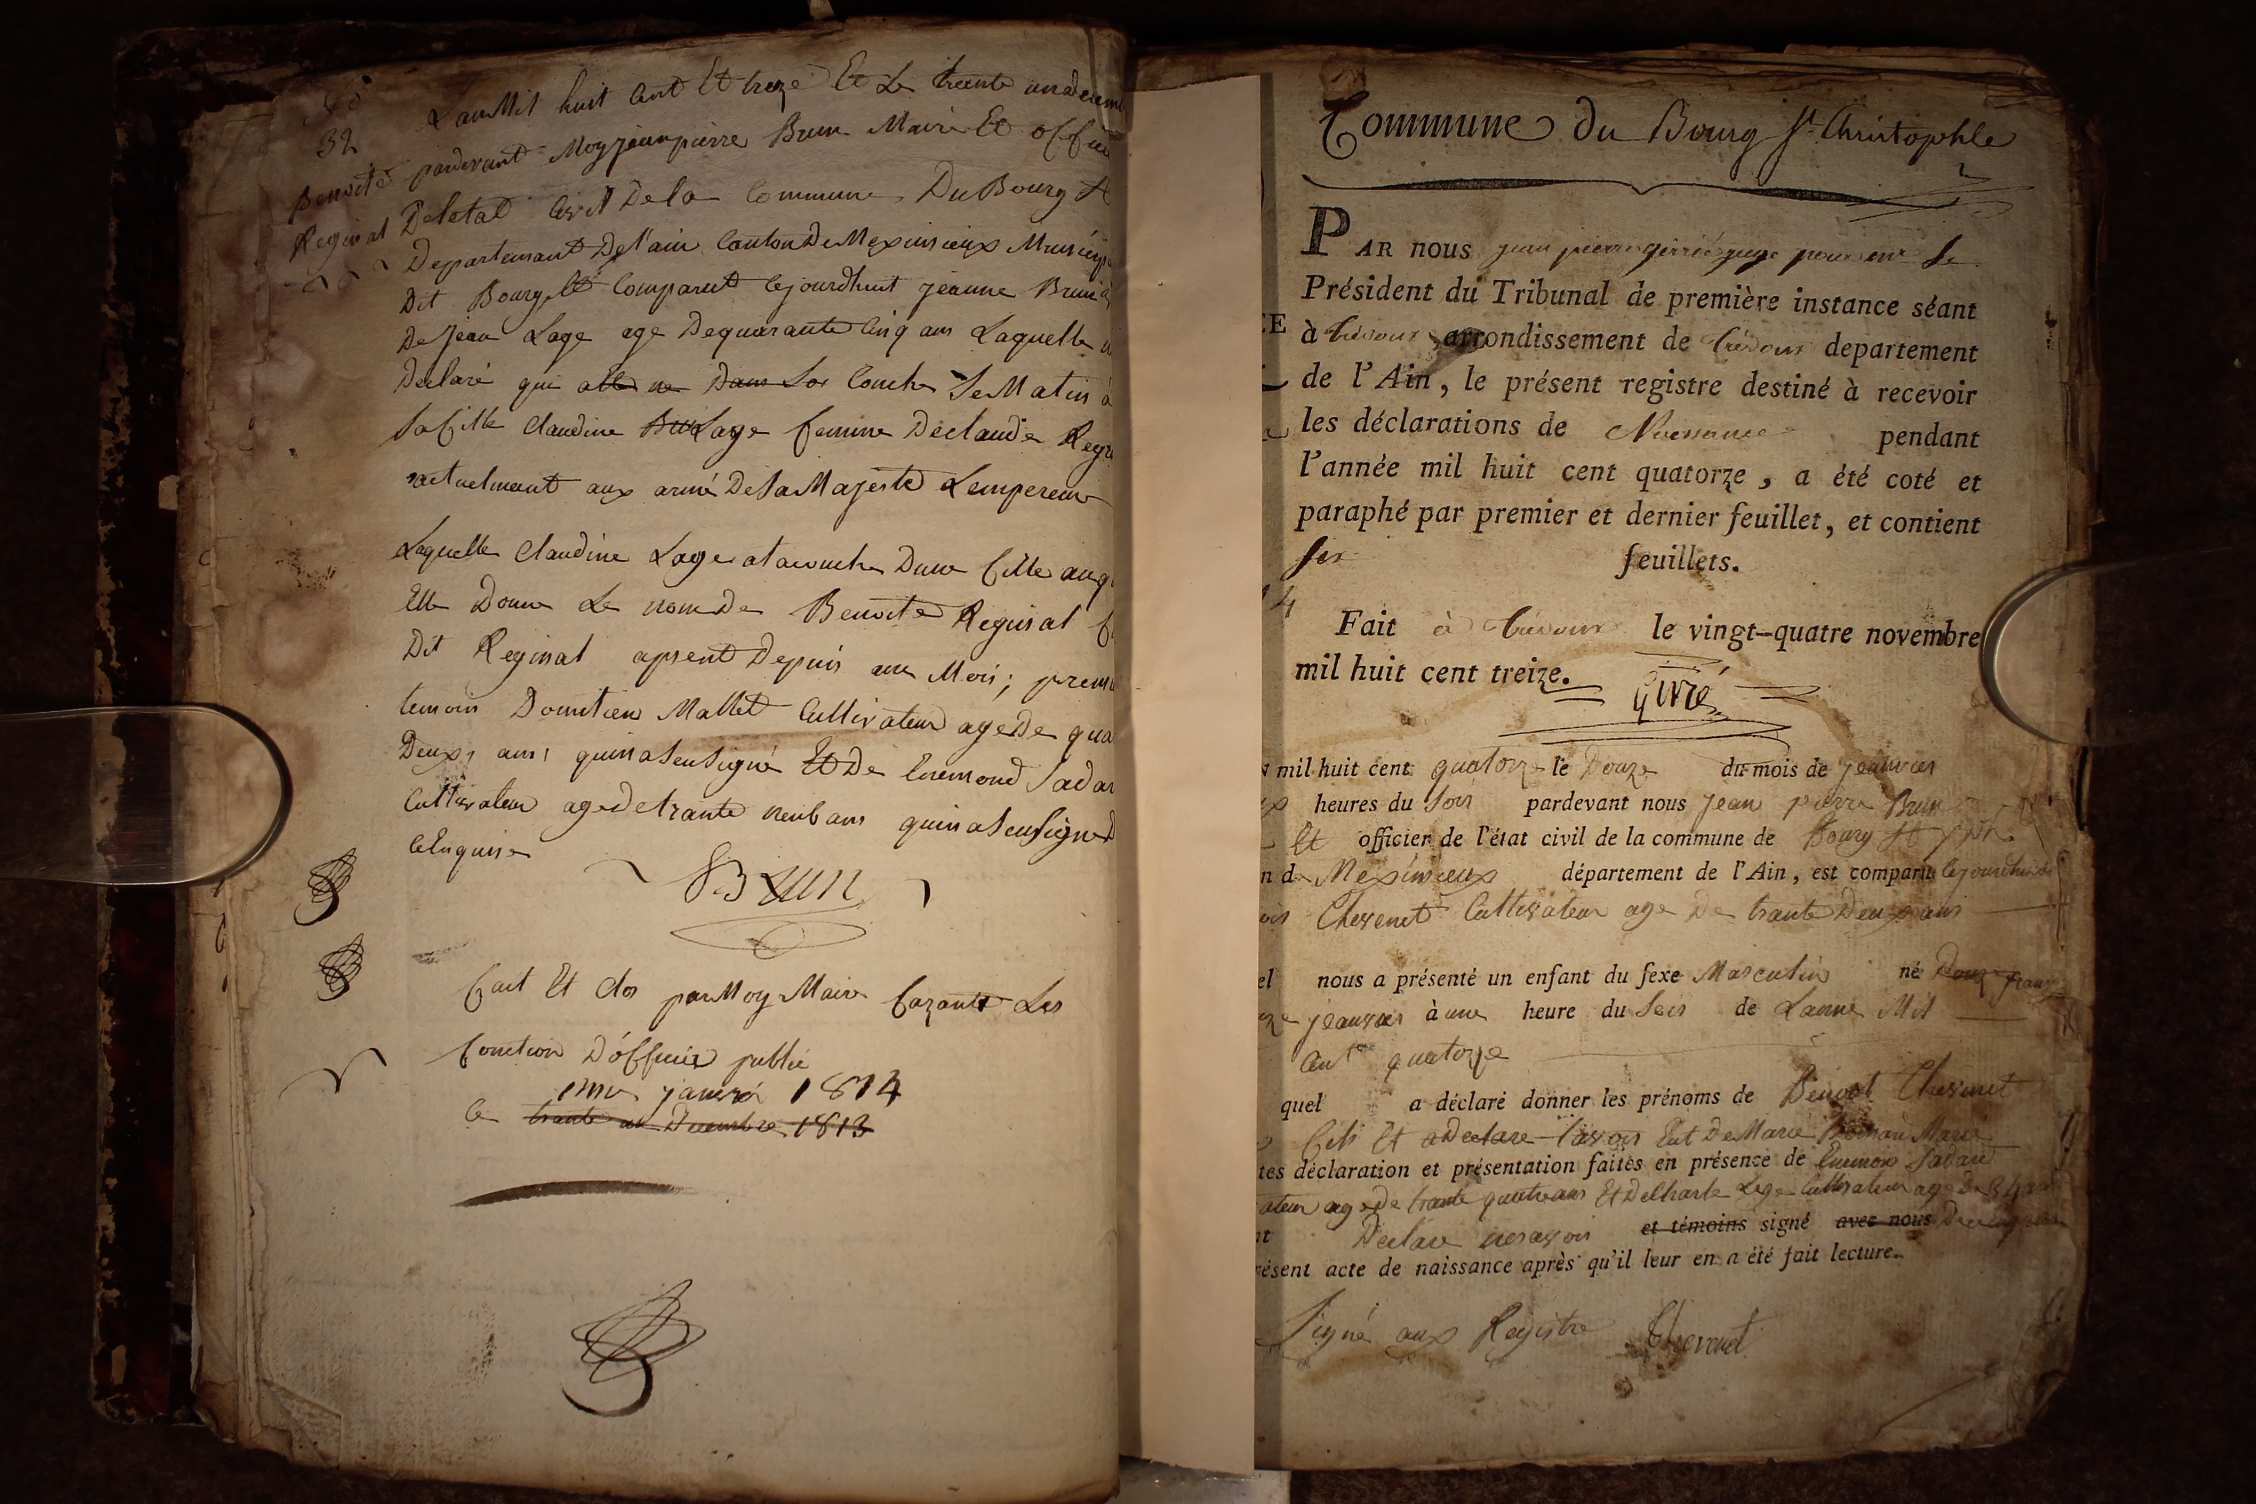 No
32
Benoite
Reginal
Lan Mil huit Cent Et treze Et Le trente un decem
pardevant Moy jean pierre Brun Maire Et officie
De letat Civil De la Commune Du Bourg St
Departemant De l'ain Canton De Meximieux Municip
Dit Bourg St Comparut Cejourdhuit jeanne Brun
De jean Lage age De quarante Cinq ans Laquelle a
Declaré que Couche Se Matin à
Sa fille Claudine Lage femme De claude Regi
actuelmeant aux armé De Sa Majesté Lempereur
Laquelle Claudine Lage at acouche Dune fille auq
Elle Donne Le nom De Benoite Reginal f
Dit Reginal apsent Depuis un Mois ; premie
temoin Domitien Mallet Cultivateur age De qua
Deux ans quina Seu Signé Et De Enemond Sadar
Cultivateur age De trante neuf ans quina Seu Signe D
Brun
fait Et Clos par Moy Maire fazant Les
fonction D'officie public
janvié 1814
Ce trante un Decembre 1813
Commune du Bourg St Christophle
PAR nous jean pierre girié juge pour
Président du Tribunal de première instance séant
à trévoux arrondissement de trévoux departement
de l'Ain, le présent registre destiné à recevoir
les déclarations de Naissance pendant
l'année mil huit cent quatorze, a été coté et
paraphé par premier et dernier feuillet, et contient
six feuillets.
Fait à trévoux le vingt-quatre novembre
mil huit cent treize.
girié
mil huit cent quatorze le Douze du mois de jeanvier
heures du Soir pardevant nous jean pierre Brun
Et officier de l'état civil de la commune de Bourg St
n de Meximieux département de l'Ain, est comparu Cejourdhui
ois Chevenet Cultivateur age De trante Deux ans
el nous a présenté un enfant du sexe Masculin né Douze
jeanvier à une heure du Soir de Lanné Mil
Cent quatorze
quel a déclaré donner les prénoms de Benoot Chevenet
fils Et a Declare Lavoir Eut De Marie
tes déclaration et présentation faites en présence de Enemon Sadare
ateur age De trante quatre ans Et De Charle Lage Cultivateur age De 34
nt Declare ne savoir et témoins signé avec nous
résent acte de naissance après qu'il leur en a été fait lecture.
Signé aux Registre Chevenet